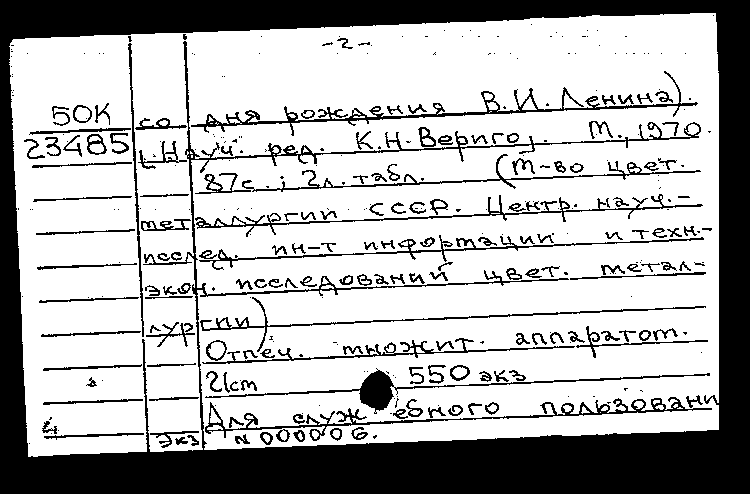 -2-
50К
23485
со дня рождения В.И.Ленина).
[Науч. ред. К.Н.Вериго]. М., 1970.
87с.; 2л.табл. (М-во цвет.
металлургии СССР. Центр. науч.-
исслед. ин-т информации и техн.-
экон. исследований цвет. метал-
лургии)
Отпеч. множит. аппаратом.
21см 550 экз
Для служебного пользовани
4
Экз. N 000006.